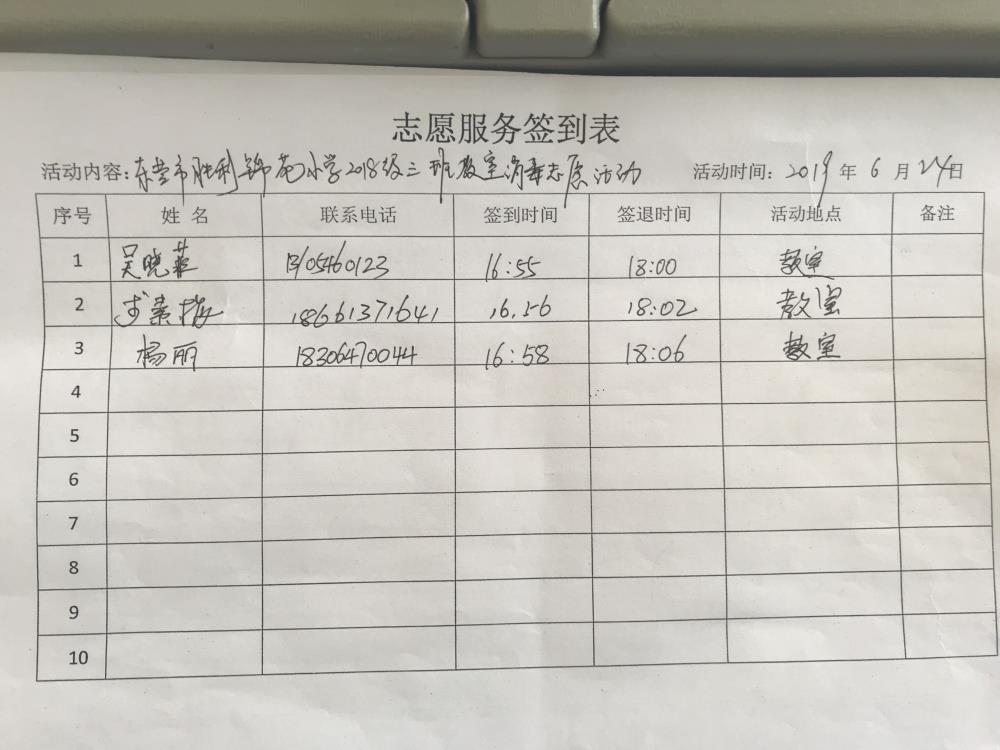 志愿服务签到表
活动内容:东营市胜利锦苑小学2018级三班教室消毒志愿活动 活动时间:2019年6月24日
序号 姓名 联系电话 签到时间 签退时间 活动地点 备注
1 吴晓菲 13105460123 16:55 18:00 教室
2 素梅 18661371641 16.56 18:02 教室
3 杨丽 18306470044 16:58 18:06 教室
4
5
6
7
8
9
10